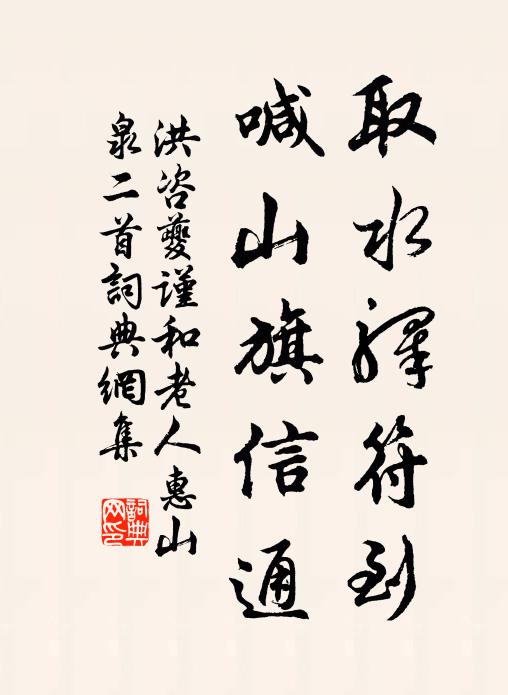 取水驛符到
喊山旗信通
洪咨夔謹和老人惠山
泉二首詞典網集
詞典
网印